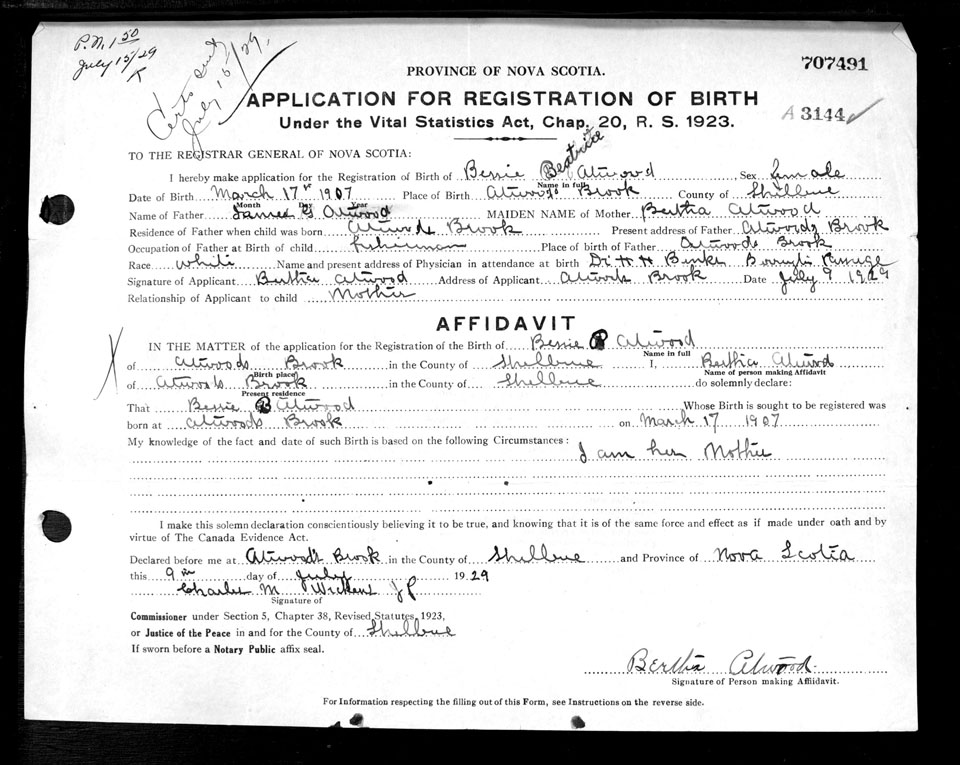 P.N. 1 50
July 15/29
T
Certs sent
July 16/29.
PROVINCE OF NOVA SCOTIA.
707491
APPLICATION FOR REGISTRATION OF BIRTH
A 3144
Under the Vital Statistics Act, Chap. 20, R. S. 1923.
TO THE REGISTRAR GENERAL OF NOVA SCOTIA:
I hereby make application for the Registration of Birth of Bessie Beatrice Atwood Sex Female
Name in full
Date of Birth March 17th 1907 Place of Birth Atwoods Brook County of Shelburne
Month Day Year
Name of Father James G Atwood MAIDEN NAME of Mother Bertha Atwood
Residence of Father when child was born Atwoods Brook Present address of Father Atwoods Brook
Occupation of Father at Birth of child fisherman Place of birth of Father Atwoods Brook
Race white Name and present address of Physician in attendance at birth Dr H H Banks Barrington Passage
Signature of Applicant Bertha Atwood Address of Applicant Atwoods Brook Date July 9 1929
Relationship of Applicant to child Mother
AFFIDAVIT
IN THE MATTER of the application for the Registration of the Birth of Bessie B Atwood
Name in full
of Atwoods Brook in the County of Shelburne I, Bertha Atwood
Birth place Name of person making Affidavit
of Atwoods Brook in the County of Shelburne do solemnly declare:
Present residence
That Bessie B Atwood Whose Birth is sought to be registered was
born at Atwoods Brook on March 17 1907
My knowledge of the fact and date of such Birth is based on the following Circumstances:
I am her Mother
I make this solemn declaration conscientiously believing it to be true, and knowing that it is of the same force and effect as if made under oath and by
virtue of The Canada Evidence Act.
Declared before me at Atwood's Brook in the County of Shelburne and Province of Nova Scotia
this 9th day of July 1929
Charles M JP
Signature of
Commissioner under Section 5, Chapter 38, Revised Statutes, 1923,
or Justice of the Peace in and for the County of Shelburne
If sworn before a Notary Public affix seal.
Bertha Atwood.
Signature of Person making Affidavit.
For Information respecting the filling out of this Form, see Instructions on the reverse side.